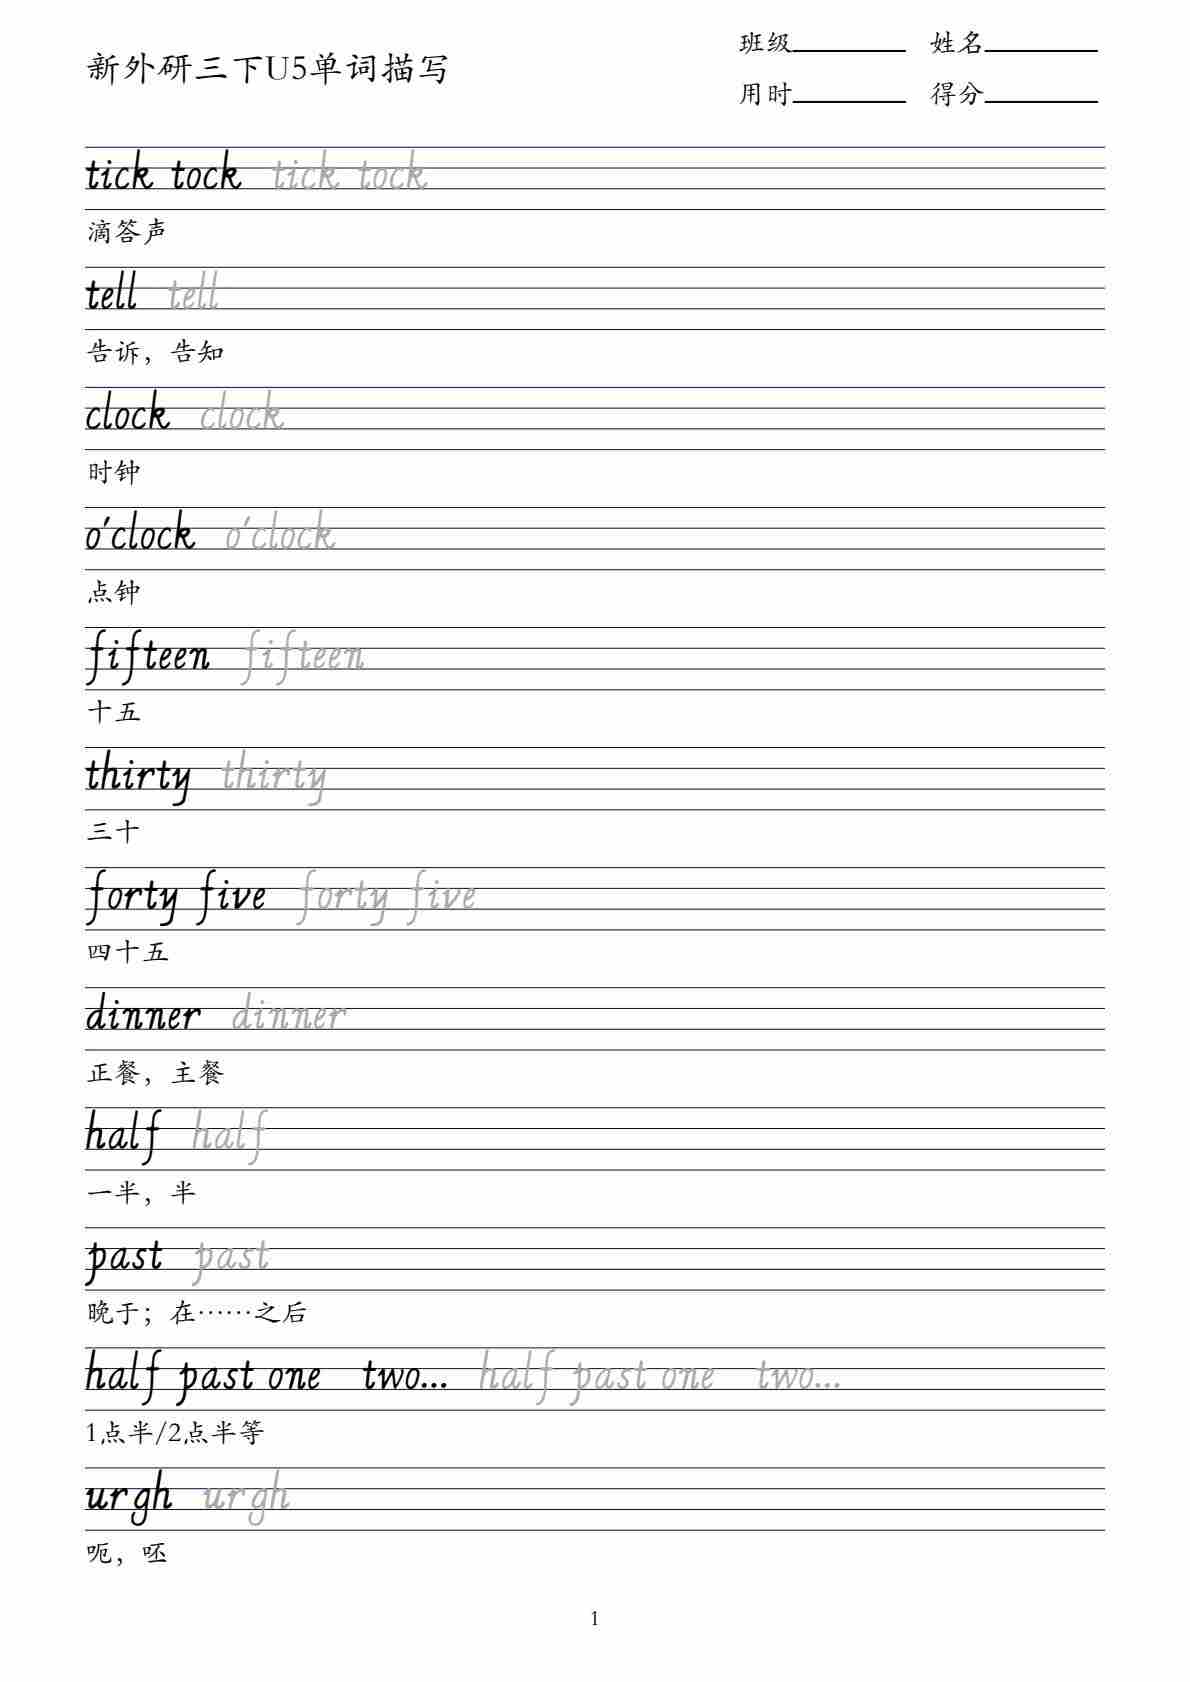 班级 姓名
新外研三下U5单词描写
用时 得分
tick tock tick tock
滴答声
tell tell
告诉，告知
clock clock
时钟
o'clock o'clock
点钟
fifteen fifteen
十五
thirty thirty
三十
forty five forty five
四十五
dinner dinner
正餐，主餐
half half
一半，半
past past
晚于；在……之后
half past one two... half past one two...
1点半/2点半等
urgh urgh
呃，呸
1